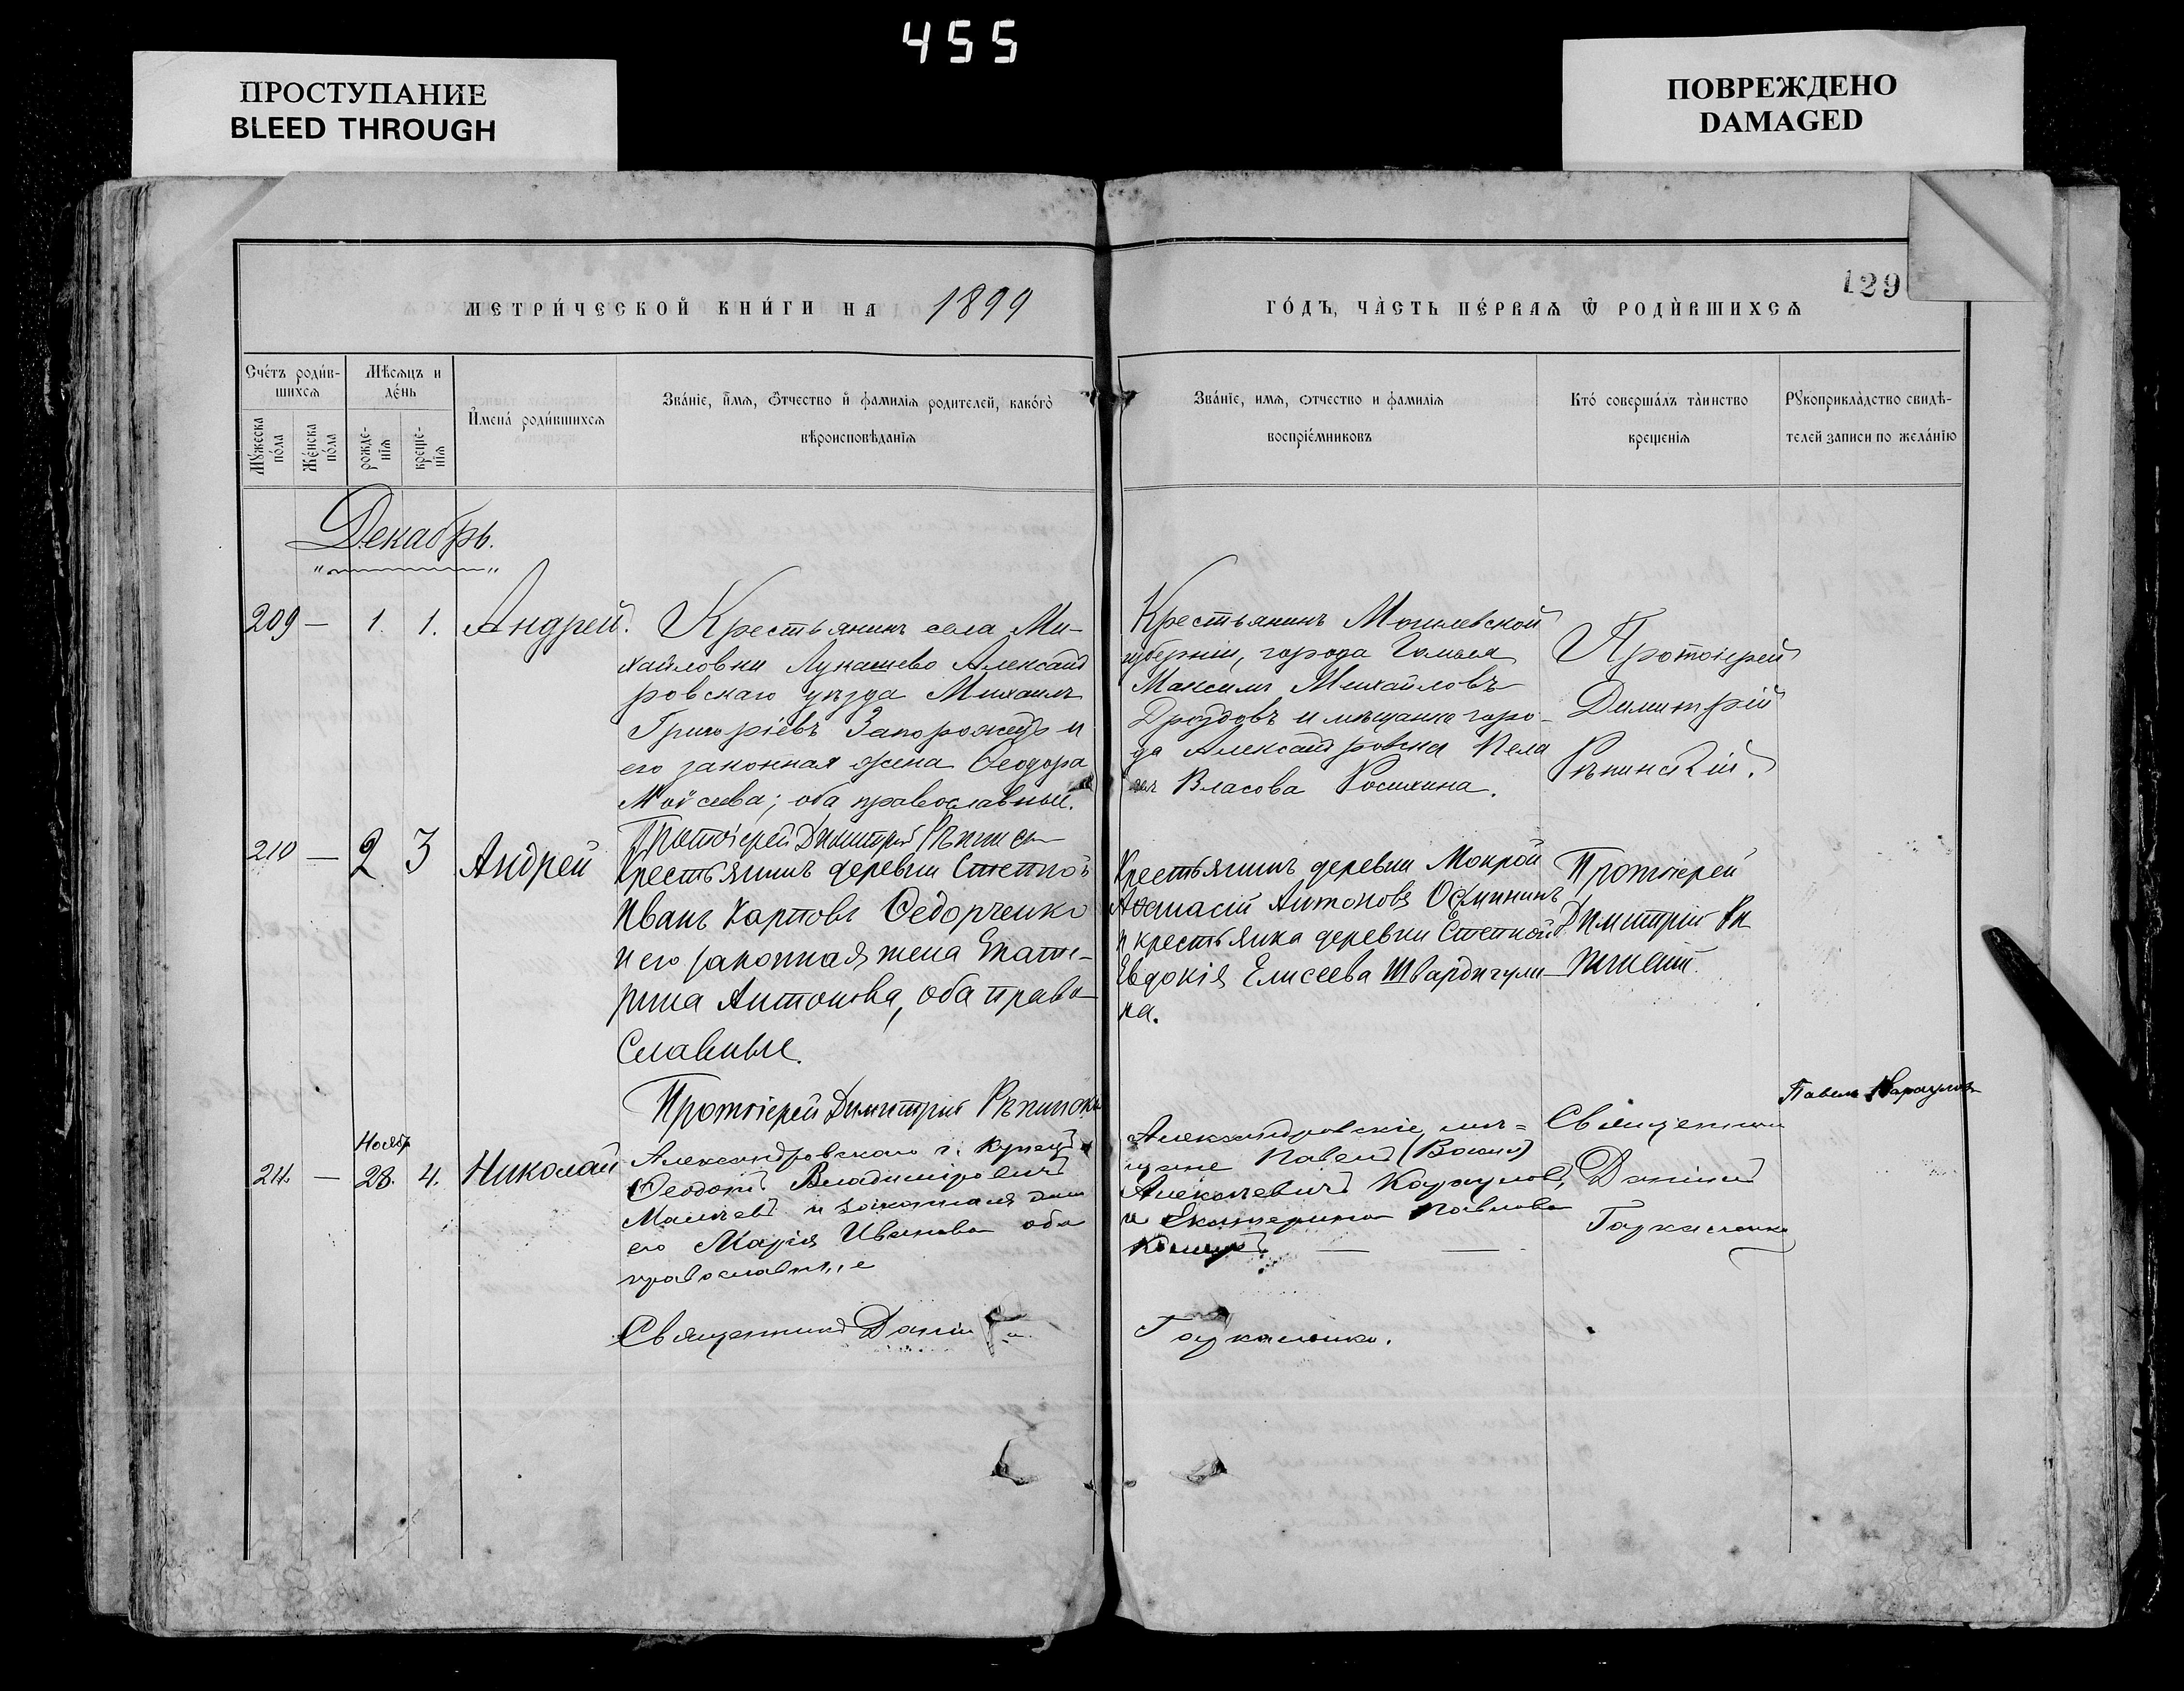 455
ПРОСТУПАНИЕ
BLEED THROUGH
ПОВРЕЖДЕНО
DAMAGED
129
МЕТРИ́ЧЕСКОЙ КНИ́ГИ НА 1899
ГО́ДЪ, ЧА̀СТЬ ПЕ́РВАѦ Ѿ РОДИ́ВШИХСѦ
Сче́тъ роди́в-
шихсѧ
Мѣ́сѧцъ и
де́нь
Мꙋ́жеска
по́ла
Же́нска
по́ла
рожде-
нїѧ
креще-
нїѧ
И҆мена́ роди́вшихсѧ
Зва́нїе, и҆́мѧ, ѻ҆́тчество и҆ фамилїѧ родителей, како́гѡ
вѣроисповѣ́данїѧ
Зва́нїе, имѧ, ѻтчество и фамилїѧ
воспрїе́мниковъ
Кто́ соверша́лъ та̀инство
креще́нїѧ
Рꙋкоприкла́дство свидѣ́-
телей записи по жела́нїю
Декабрь.
209 — 1. 1. Андрей.
Крестьянинъ села Ми-
хайловки Лукашево Александ
ровскаго уѣзда Михаилъ
Григоріевъ Запорожецъ и
его законная жена Ѳеодора
Моѵсеева; оба православные.
Протоіерей Димитрій Рѣпинск
Крестьянинъ Могилевской
губерніи, города Гомеля
Максимъ Михайловъ
Дроздовъ и мѣщанка горо-
да Александровска Пела
гія Власова Росихина.
Протоіерей
Димитрій
Рѣпинскій.
210 — 2 3 Андрей
Крестьянинъ деревни Степной
Иванъ Карповъ Ѳедорченко
и его законная жена Екате-
рина Антонова, оба право-
славные.
Протоіерей Димитрій Рѣпинскі
Крестьянинъ деревни Мокрой
Аѳанасій Антоновъ
и крестьянка деревни Степной
Евдокія Елисеева Швардигули-
на.
Протоіерей
Димитрій Рѣ
пинскій.
Ноябр
211. — 28. 4. Николай
Александровскаго г. купецъ
Ѳеодоръ Владиміровичъ
и законная жена
его Марія Иванова оба
православные
Священникъ Даніилъ
Александровскіе мѣ=
щане Павелъ
Алексѣевичъ Карауловъ,
и Екатерина Павлова
Священникъ
Даніилъ
Павелъ Карауловъ